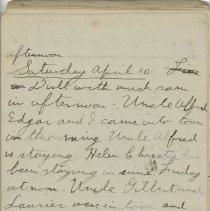 afternoon
Saturday April 10
Dull with much rain
in afternoon. Uncle Alfred
Edgar and I came into town
in the morning Uncle Alfred
is staying. Helen Christie has
been staying in since Friday
at noon. Uncle Gilbert and
Laurier were in town and